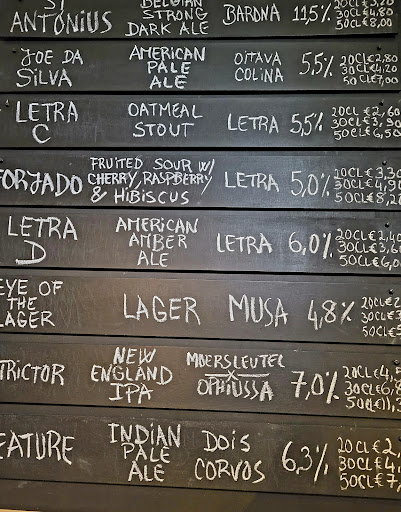 ST BELGIAN 20CL€3,20
ANTONIUS STRONG BARONA 11,5% 30CL€4,80
DARK ALE 50CL€8,00
JOE DA AMERICAN OITAVA 20CL€2,80
SILVA PALE COLINA 5,5% 30CL€4,20
ALE 50CL€7,00
LETRA OATMEAL LETRA 5,5% 20CL€2,60
C STOUT 30CL€3,90
50CL€6,50
FORJADO FRUITED SOUR W/ LETRA 5,0% 20CL€3,30
CHERRY, RASPBERRY 30CL€4,90
& HIBISCUS 50CL€8,20
LETRA AMERICAN LETRA 6,0% 20CL€2,40
D AMBER 30CL€3,60
ALE 50CL€6,0
EYE OF LAGER MUSA 4,8% 20CL€2
THE 30CL€3
LAGER 50CL€5
TRICTOR NEW MOERSLEUTEL 7,0% 20CL€4,5
ENGLAND X 30CL€6,8
IPA OPHIUSSA 50CL€11,3
EATURE INDIAN DOIS 6,3% 20CL€2,
PALE CORVOS 30CL€4,
ALE 50CL€7,